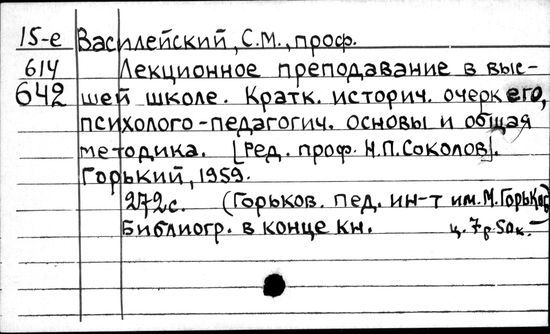 15-е Василейский, С.М., проф.
614 Лекционное преподавание в выс-
642 шей школе. Кратк. историч. очерк его,
психолого-педагогич. основы и общая
методика. [Ред. проф. Н.П.Соколов].
Горький, 1959.
272с. (Горьков. пед. ин-т им. М. Горького)
Библиогр. в конце кн. ц. 7р. 50к.